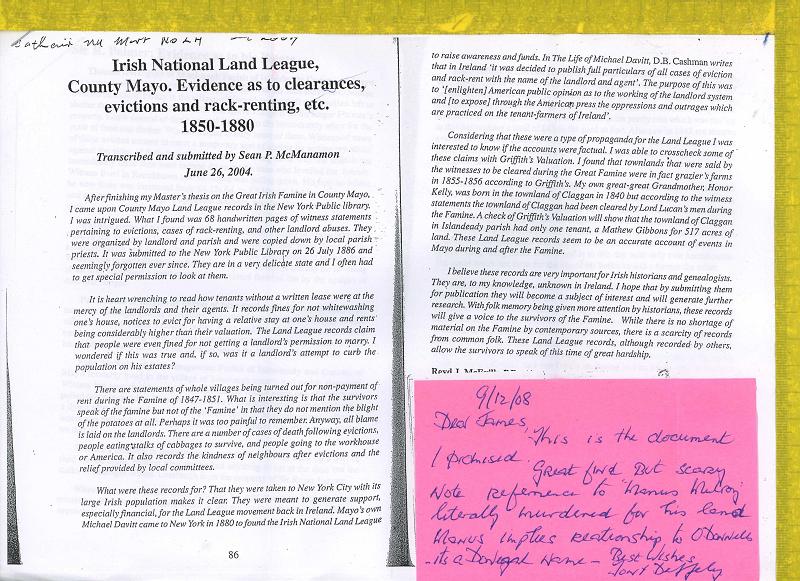 Irish National Land League,
County Mayo. Evidence as to clearances,
evictions and rack-renting, etc.
1850-1880
Transcribed and submitted by Sean P. McManamon
June 26, 2004.
After finishing my Master's thesis on the Great Irish Famine in County Mayo,
I came upon County Mayo Land League records in the New York Public library.
I was intrigued. What I found was 68 handwritten pages of witness statements
pertaining to evictions, cases of rack-renting, and other landlord abuses. They
were organized by landlord and parish and were copied down by local parish
priests. It was submitted to the New York Public Library on 26 July 1886 and
seemingly forgotten ever since. They are in a very delicate state and I often had
to get special permission to look at them.
It is heart wrenching to read how tenants without a written lease were at the
mercy of the landlords and their agents. It records fines for not whitewashing
one's house, notices to evict for having a relative stay at one's house and rents
being considerably higher than their valuation. The Land League records claim
that people were even fined for not getting a landlord's permission to marry. I
wondered if this was true and, if so, was it a landlord's attempt to curb the
population on his estates?
There are statements of whole villages being turned out for non-payment of
rent during the Famine of 1847-1851. What is interesting is that the survivors
speak of the famine but not of the 'Famine' in that they do not mention the blight
of the potatoes at all. Perhaps it was too painful to remember. Anyway, all blame
is laid on the landlords. There are a number of cases of death following evictions,
people eating stalks of cabbages to survive, and people going to the workhouse
or America. It also records the kindness of neighbours after evictions and the
relief provided by local committees.
What were these records for? That they were taken to New York City with its
large Irish population makes it clear. They were meant to generate support,
especially financial, for the Land League movement back in Ireland. Mayo's own
Michael Davitt came to New York in 1880 to found the Irish National Land League
86
to raise awareness and funds. In The Life of Michael Davitt, D.B. Cashman writes
that in Ireland 'it was decided to publish full particulars of all cases of eviction
and rack-rent with the name of the landlord and agent'. The purpose of this was
to '[enlighten] American public opinion as to the working of the landlord system
and [to expose] through the American press the oppressions and outrages which
are practiced on the tenant-farmers of Ireland'.
Considering that these were a type of propaganda for the Land League I was
interested to know if the accounts were factual. I was able to crosscheck some of
these claims with Griffith's Valuation. I found that townlands that were said by
the witnesses to be cleared during the Great Famine were in fact grazier's farms
in 1855-1856 according to Griffith's. My own great-great Grandmother, Honor
Kelly, was born in the townland of Claggan in 1840 but according to the witness
statements the townland of Claggan had been cleared by Lord Lucan's men during
the Famine. A check of Griffith's Valuation will show that the townland of Claggan
in Islandeady parish had only one tenant, a Mathew Gibbons for 517 acres of
land. These Land League records seem to be an accurate account of events in
Mayo during and after the Famine.
I believe these records are very important for Irish historians and genealogists.
They are, to my knowledge, unknown in Ireland. I hope that by submitting them
for publication they will become a subject of interest and will generate further
research. With folk memory being given more attention by historians, these records
will give a voice to the survivors of the Famine. While there is no shortage of
material on the Famine by contemporary sources, there is a scarcity of records
from common folk. These Land League records, although recorded by others,
allow the survivors to speak of this time of great hardship.
9/12/08
Dear James,
This is the document
I promised.
Great find But scary
Note reference to 'Manus Mulroy'
literally murdered for his land
Manus implies relationship to O'Donnells
- its a Donegal name - Best wishes